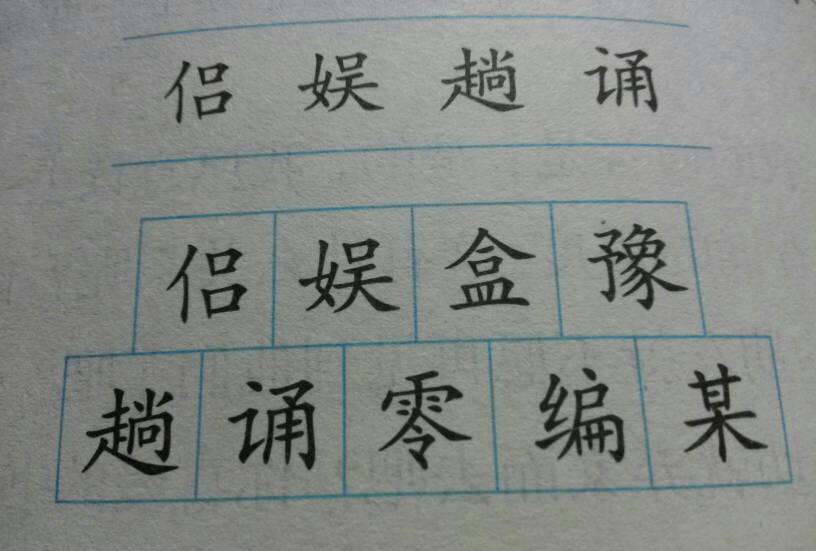 侣 娱 趟 诵
侣 娱 盒 豫
趟 诵 零 编 某